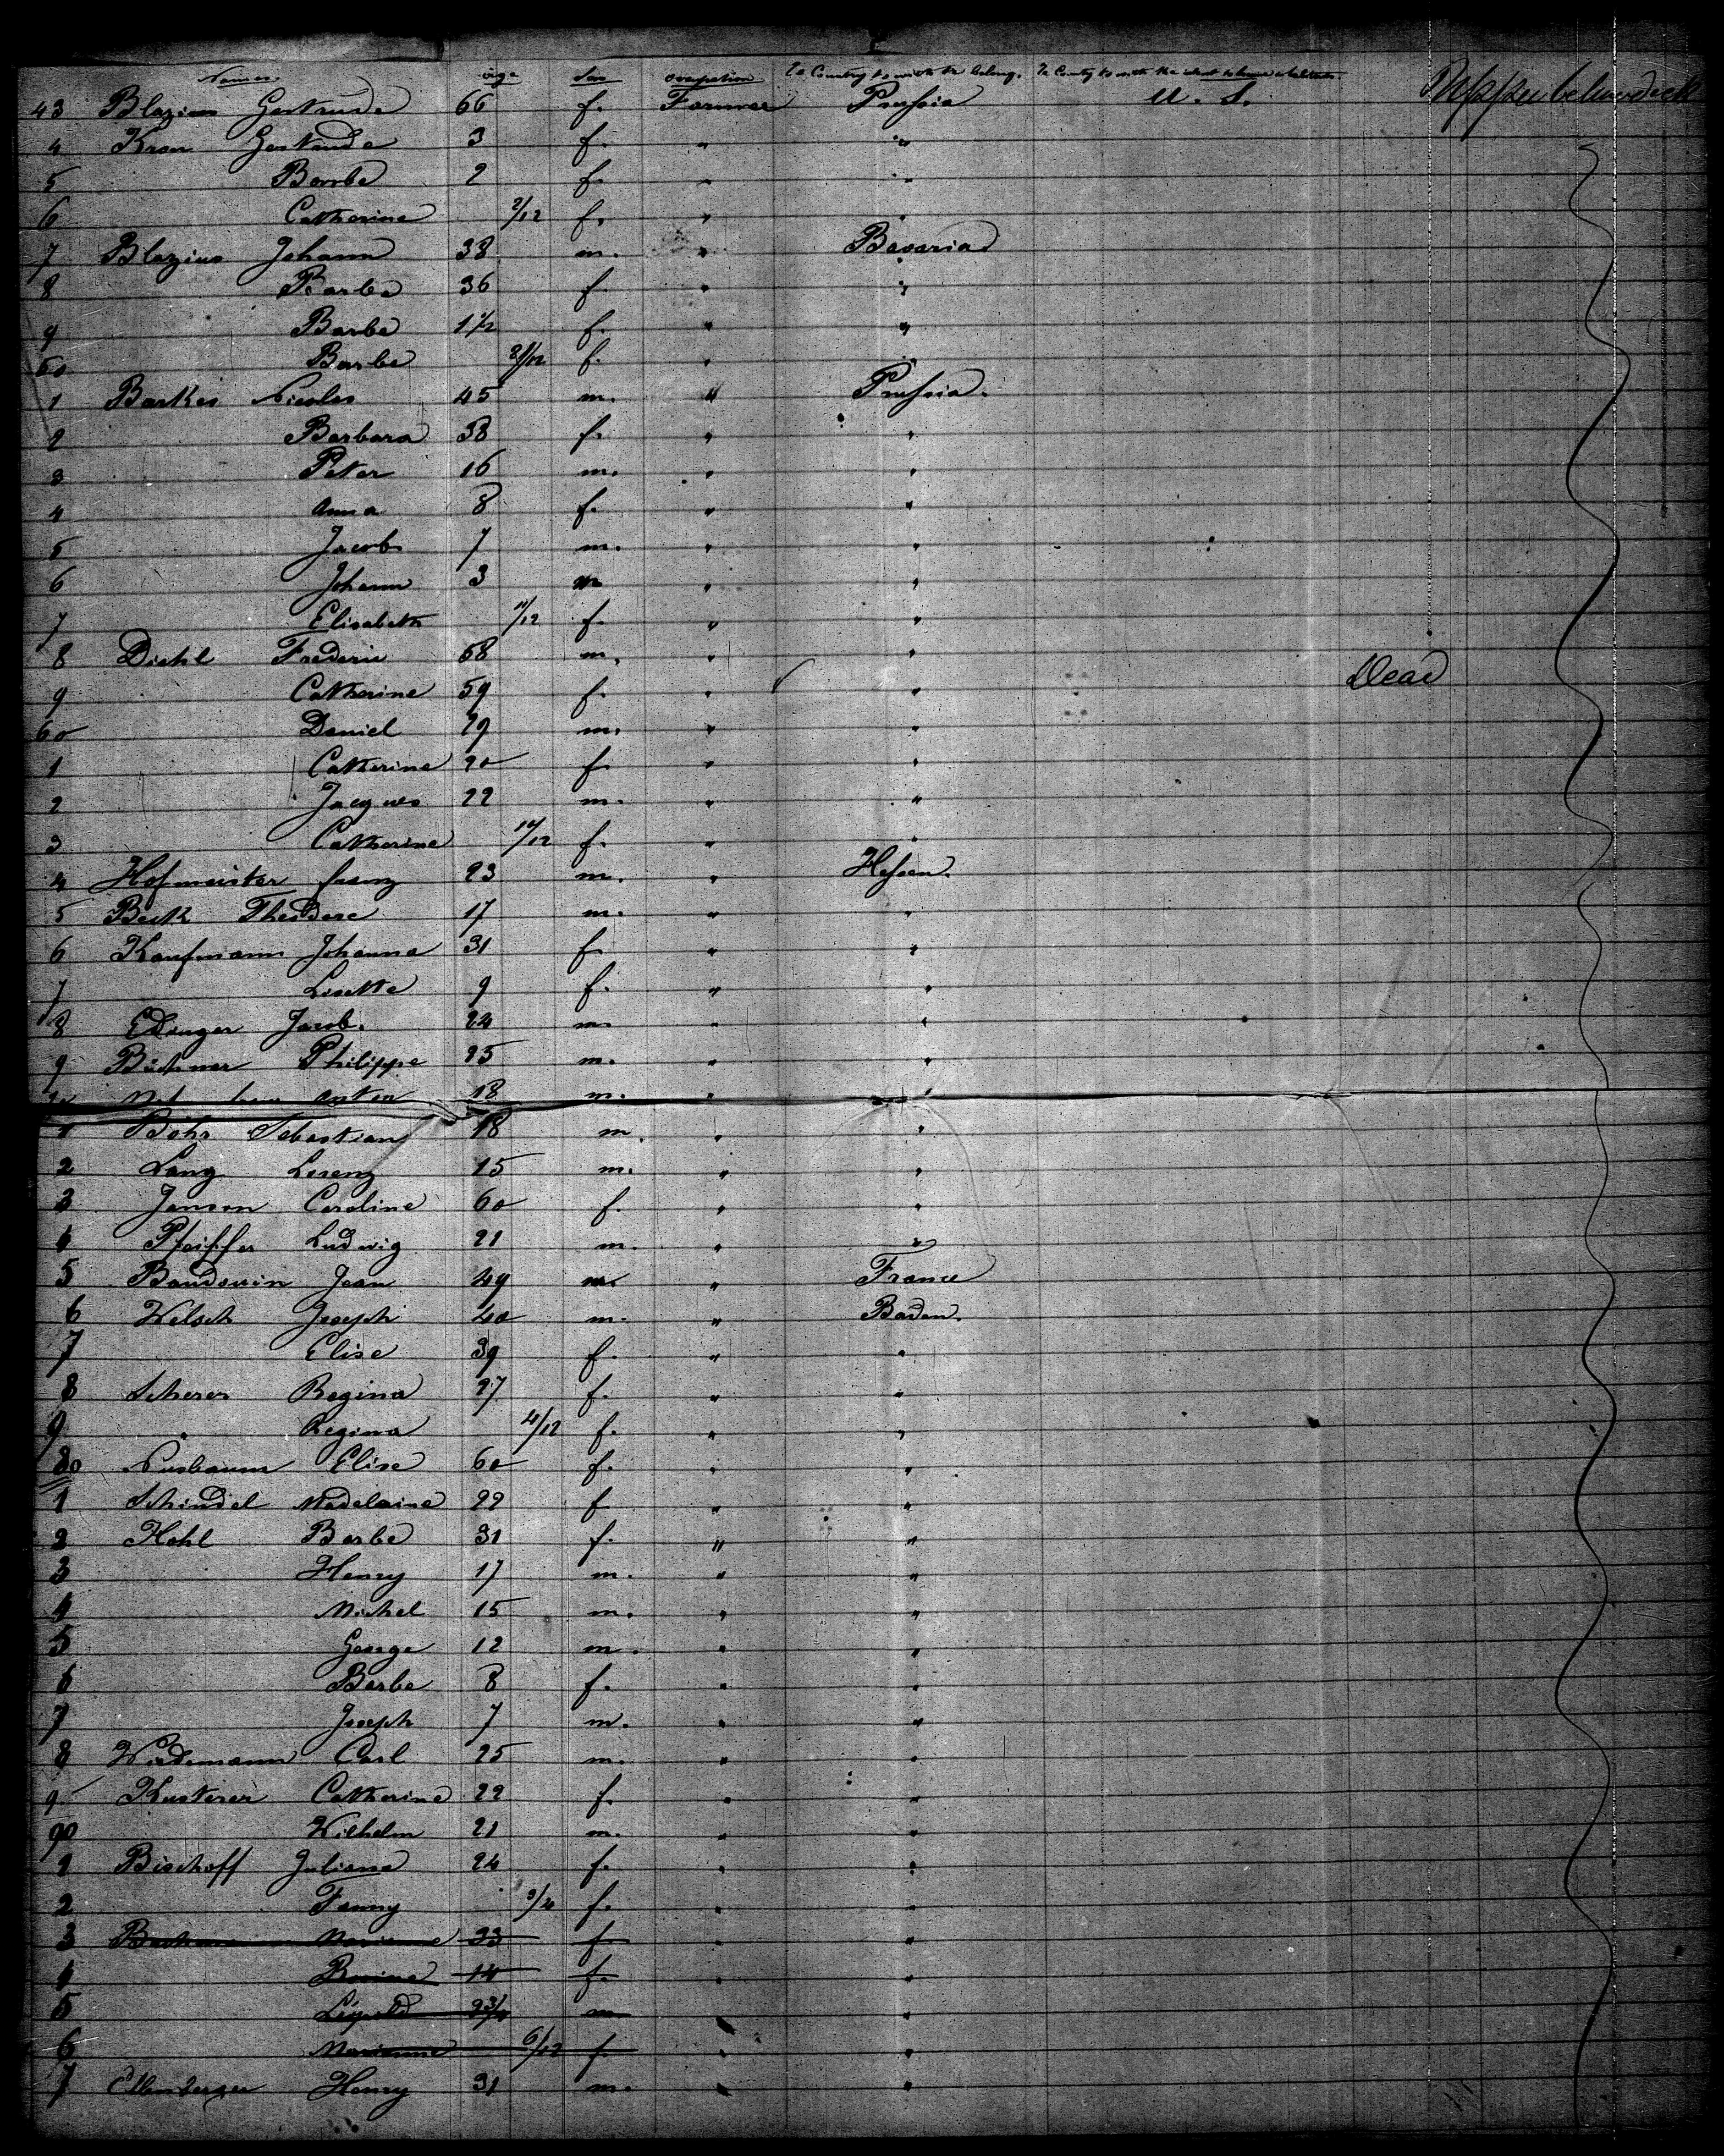 Names. age Sex occupation To Country to with the belong. To Contry to with the intent to become inhabitants.
43 Blazius Gertrude 66 f. Farmer Prussia U. S. Upper between deck
4 Kron Gertrude 3 f. " "
5 Barbe 2 f. " "
6 Catherine 2/12 f. " "
7 Blazius Johann 38 m. " Bavaria
8 Barbe 36 f " "
9 Barbe 1 1/2 f. " "
50 Barbe f. " "
1 Barkes Nicolas 45 m. " Prussia.
2 Barbara 38 f. " "
3 Peter 16 m. " "
4 Anna 8 f. " "
5 Jacob 7 m. " "
6 Johann 3 m " "
7 Elisabeth 11/12 f. " "
8 Diehl Frederic 68 m. " "
9 Catherine 59 f. " " Dead
60 Daniel 29 m. " "
1 Catherine 20 f. " "
2 Jacques 22 m. " "
3 Catherine f. " "
4 Hofmeister franz 23 m. " Hessen.
5 Beck Theodore 17 m. " "
6 Kaufmann Johanna 31 f. " "
7 Lisette 9 f. " "
8 Edinger Jacob. 24 m. " "
9 Büchner Philippe 25 m. " "
Anton 18 m. " "
1 Böhr Sebastian 18 m. " "
2 Lang Lorenz 15 m. " "
3 Janson Caroline 60 f. " "
4 Pfeiffer Ludwig 21 m. " "
5 Baudouin Jean 49 m. " France
6 Welsch Joseph 40 m. " Baden.
7 Elise 39 f. " "
8 Scherer Regina 27 f. " "
9 " Regina 4/12 f. " "
80 Nusbaum Elise 60 f. " "
1 Schindel Madelaine 22 f " "
2 Hohl Barbe 31 f. " "
3 Henry 17 m. " "
4 Michel 15 m. " "
5 George 12 m. " "
6 Barbe 8 f. " "
7 Joseph 7 m. " "
8 Wiedemann Carl 25 m. " "
9 Kusterer Catherine 22 f. " "
90 Wilhelm 21 m. " "
1 Bischoff Juliana 24 f. " "
2 Fanny 3/4 f. " "
3 Marianne 33 f. " "
4 Rosina 14 f. " "
5 Léopold 2 3/4 m " "
6 Marianne 6/12 f. " "
7 Ellenberger Henry 31 m. " "